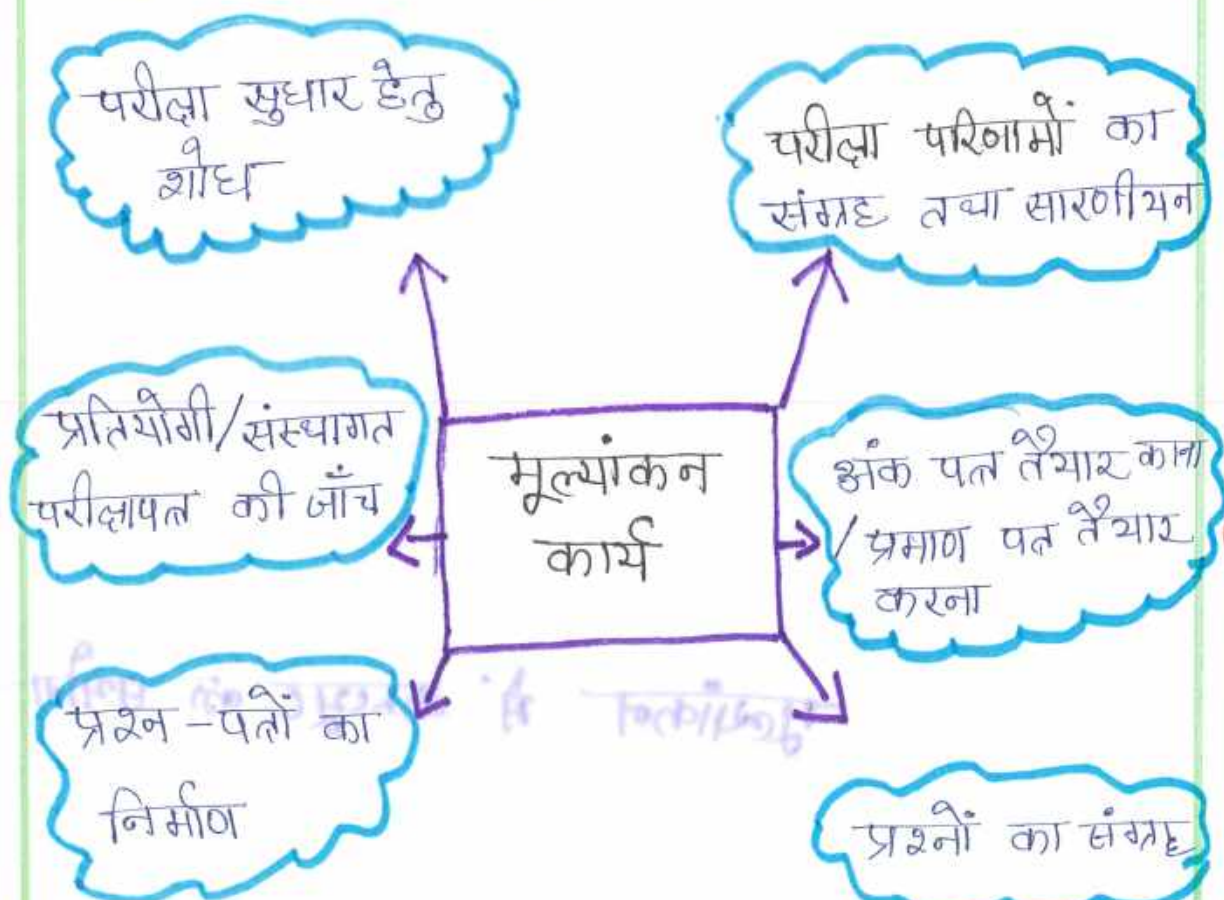 परीक्षा सुधार हेतु
शोध
परीक्षा परिणामों का
संग्रह तथा सारणीयन
प्रतियोगी/संस्थागत
परीक्षापत्र की जाँच
मूल्यांकन
कार्य
अंक पत्र तैयार करना
/ प्रमाण पत्र तैयार
करना
प्रश्न-पत्रों का
निर्माण
प्रश्नों का संग्रह